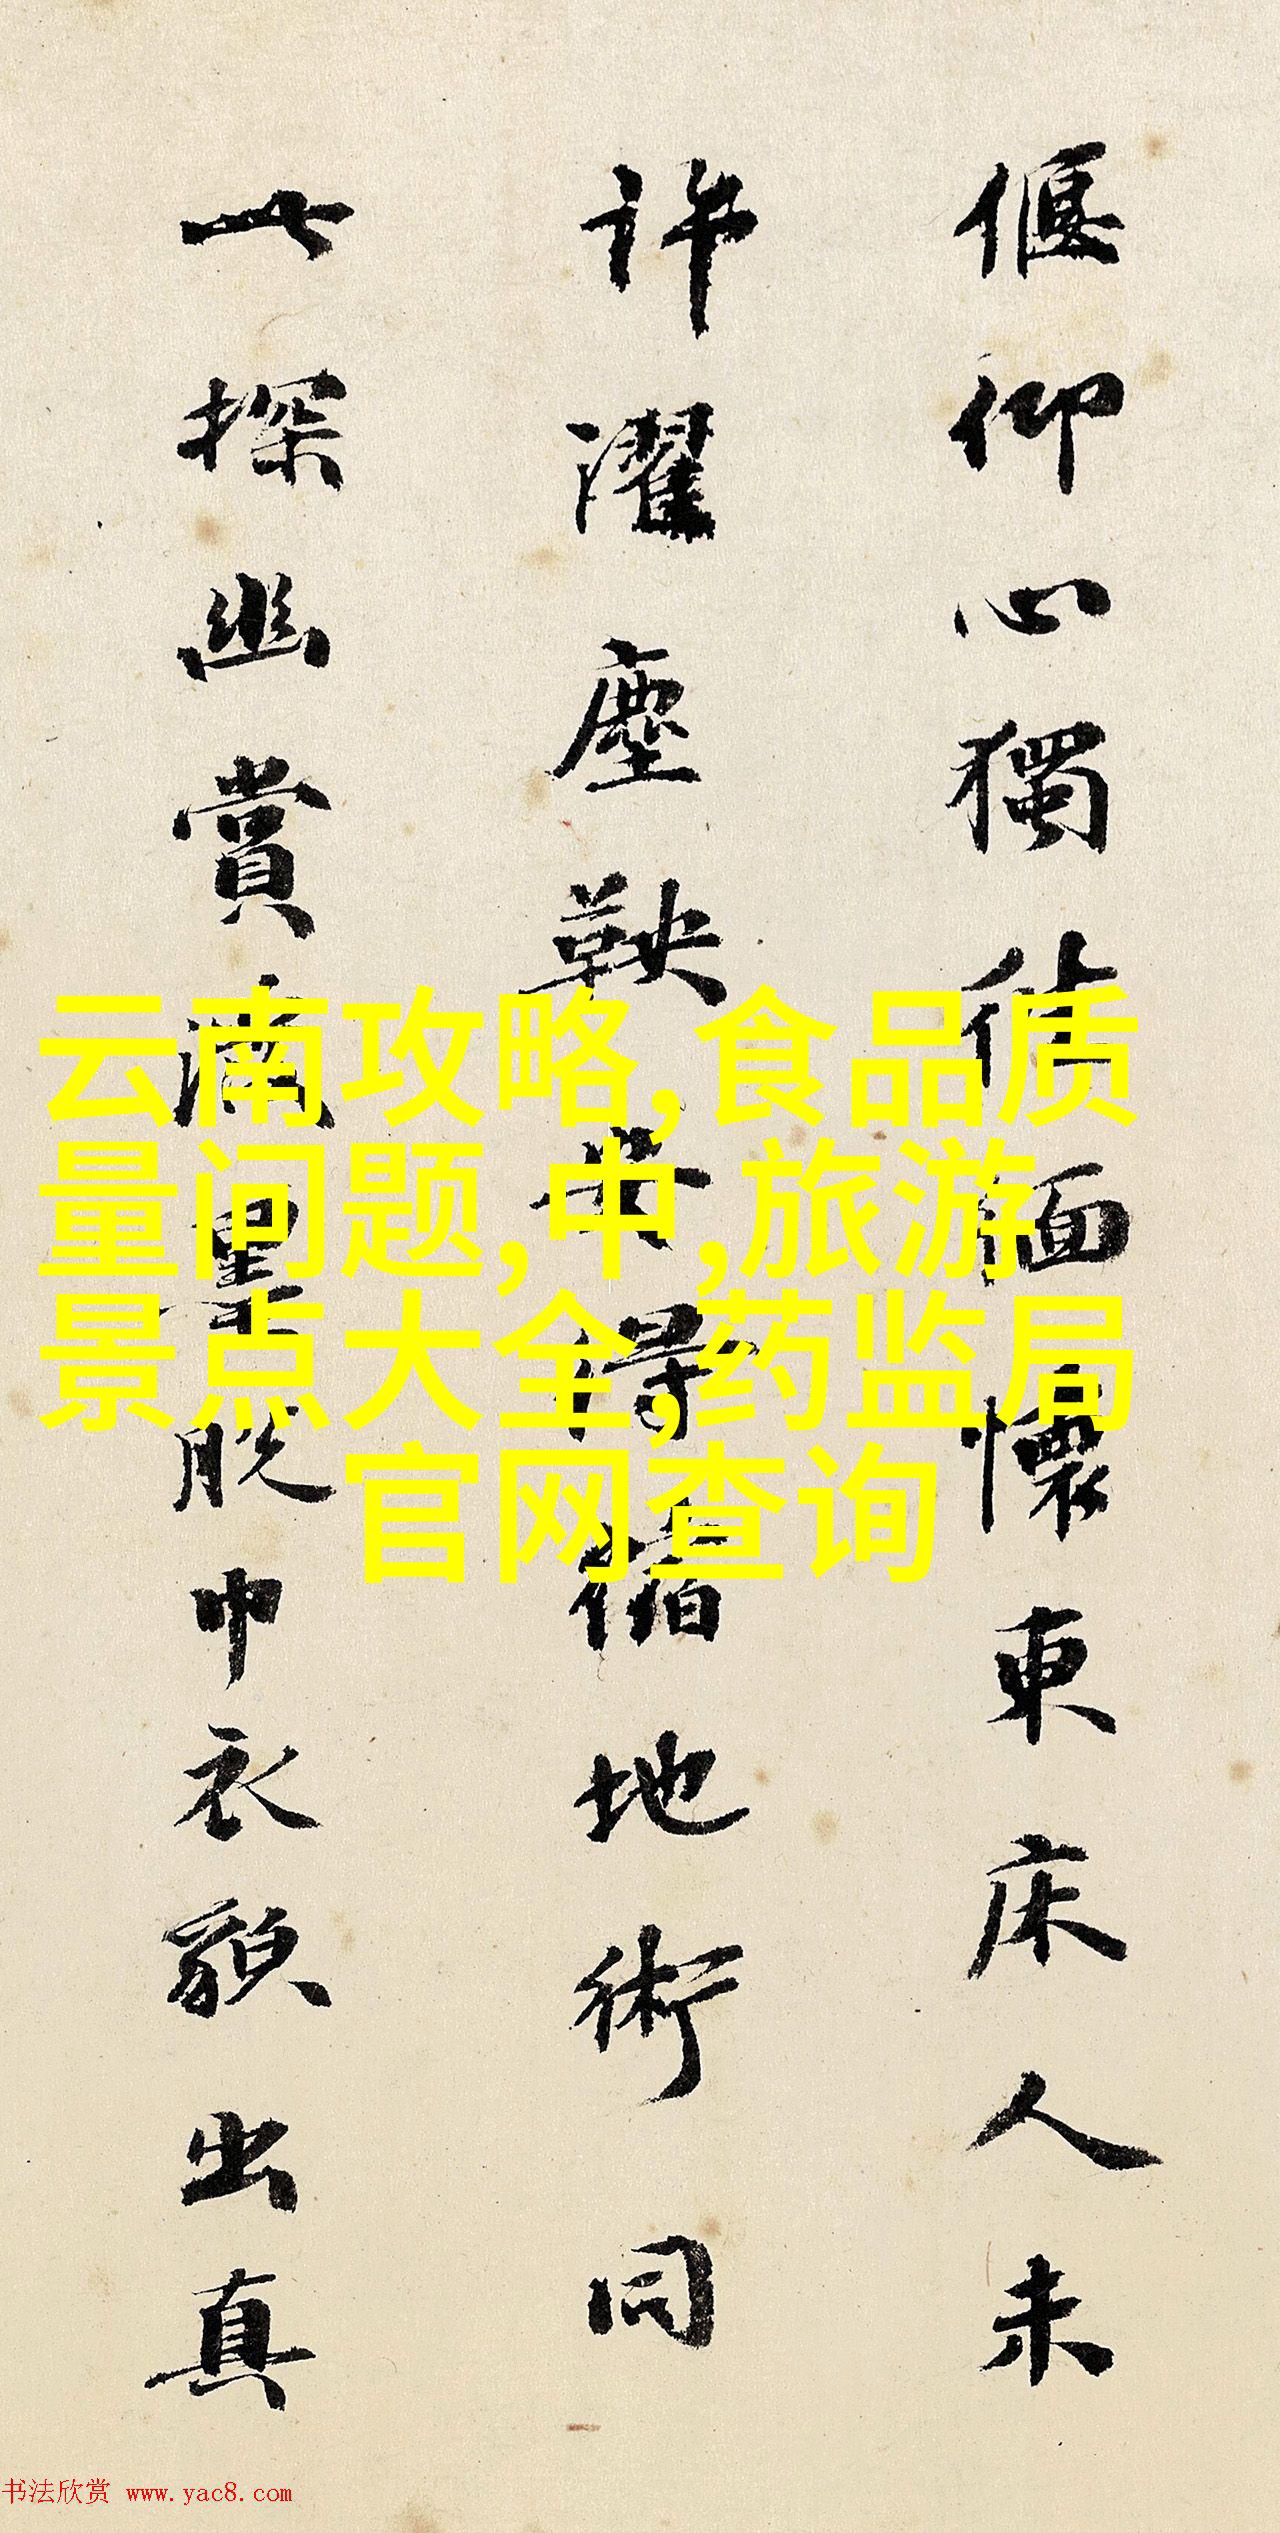 偃仰心獨緬懷東床人未
許濯塵鞅安得地術同
此探幽賞墨脫巾衣出真
云南攻略,食品质
量问题,中,旅游
景点大全,药监局
官网查询
书法欣赏 www.yac8.com